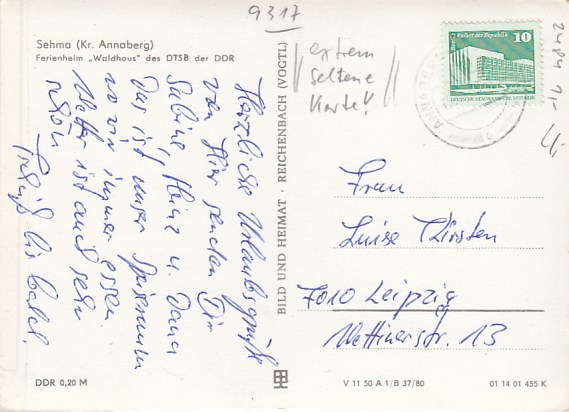 9317
Sehma (Kr. Annaberg)
Ferienheim „Waldhaus" des DTSB der DDR
extrem
seltene
Karte!
Palast der Republik
10
DEUTSCHE DEMOKRATISCHE REPUBLIK
Herzliche Urlaubsgrüße
von hier senden Dir
Sabine, Heinz u. Dana
Das ist unser Speiseraum
wo wir immer essen.
Wetter ist auch sehr
schön
Tschüß bis bald.
BILD UND HEIMAT · REICHENBACH (VOGTL)
Frau
Luise Kirsten
7010 Leipzig
Wettinerstr. 13
DDR 0,20 M
V 11 50 A 1/B 37/80
01 14 01 455 K